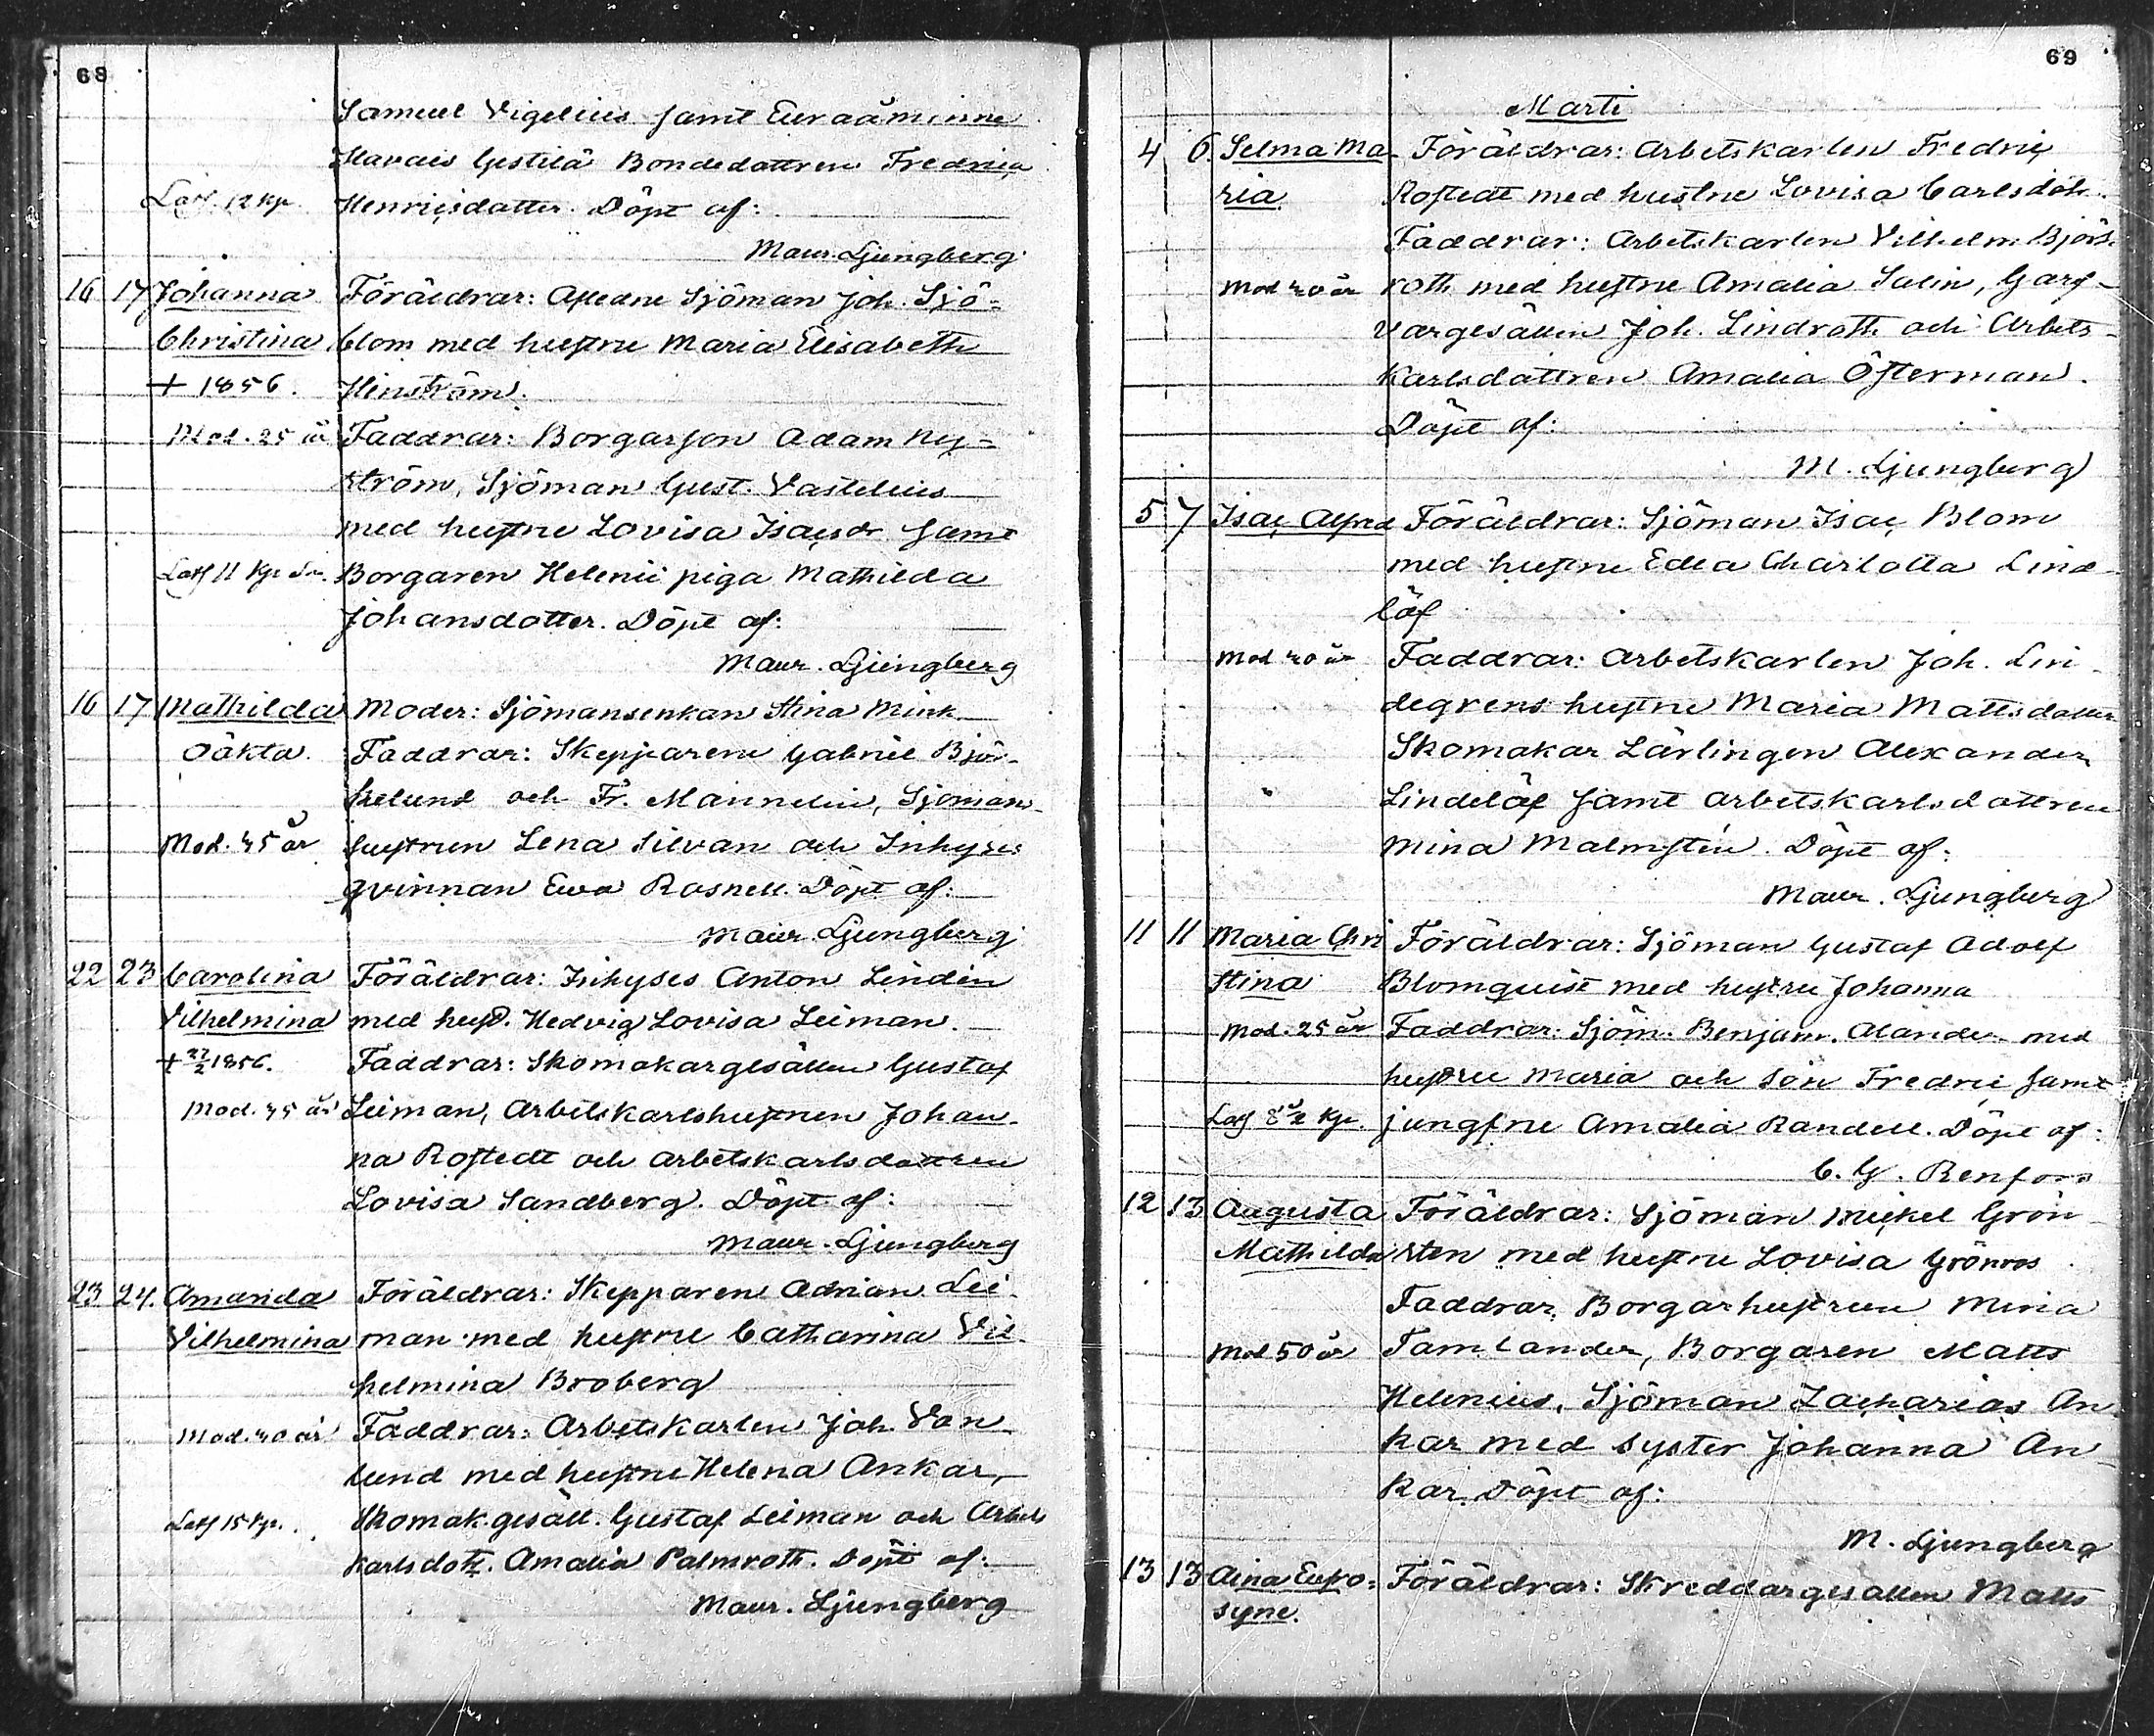 68
Samuel Vigelius samt Euraåminne
Mavais Gestilä Bondedottren Fredrica
Lösf. 12 kp. Henricsdotter. Döpt af:
Maur. Ljungberg
16 17 Johanna Föräldrar: Afledne Sjöman Joh. Sjö=
Christina blom med hustru Maria Elisabeth
+ 1856. Hinström.
Mod. 25 år Faddrar: Borgarson Adam Ny=
ström, Sjöman Gust. Vastelius
med hustru Lovisa Isacsdr samt
Lösf 11 kp. Borgaren Helenii piga Mathilda
Johansdotter. Döpt af:
Maur. Ljungberg
16 17 Mathilda Moder: Sjömansenkan Stina Mink
Oäkta. Faddrar: Skepparene Gabriel Björ-
kelund och Fr. Mannelin, Sjömans-
Mod. 45 år hustrun Lena Silvan och Inhyses
qvinnan Ewa Rosnell. Döpt af:
Maur. Ljungberg
22 23 Carolina Föräldrar: Inhyses Anton Lindén
Vilhelmina med hust. Hedvig Lovisa Leiman.
+ 27/2 1856. Faddrar: Skomakargesällen Gustaf
Mod. 45 år Leiman, Arbetskarlshustrun Johan-
na Rostedt och arbetskarlsdottren
Lovisa Sandberg. Döpt af:
Maur. Ljungberg
23 24. Amanda Föräldrar: Skepparen Adrian Lei-
Vilhelmina man med hustru Catharina Vil-
helmina Broberg
Mod. 40 år Faddrar: Arbetskarlen Joh. Van-
lund med hustru Helena Ankar,
Lösf 15 kp. Skomak.gesäll. Gustaf Leiman och Arbets
karlsdott. Amalia Palmroth. Döpt af:
Maur. Ljungberg
69
Marti
4 6. Selma Ma- Föräldrar: Arbetskarlen Fredric
ria Rostedt med hustru Lovisa Carlsdotr.
Faddrar: Arbetskarlen Vilhelm Björk
Mod 40 år roth med hustru Amalia Salin, Garf-
vargesällen Joh. Lindroth och Arbets-
karlsdottren Amalia Österman.
Döpt af:
M. Ljungberg
5 7 Isac Alfred Föräldrar: Sjöman Isac Blom
med hustru Edla Charlotta Lind-
löf
Mod 40 år Faddrar: Arbetskarlen Joh. Lin-
degrens hustru Maria Mattsdotter
Skomakar Lärlingen Alexander
Lindelöf samt arbetskarlsdottren
Mina Malmstén. Döpt af:
Maur. Ljungberg
11 11 Maria Chri Föräldrar: Sjöman Gustaf Adolf
stina Blomquist med hustru Johanna
Mod. 25 år Faddrar: Sjöm. Benjam. Alander med
hustru Maria och Son Fredric samt
Lösf 8 1/2 kp. jungfru Amalia Randell. Döpt af:
C. G. Renfors
12 13 Augusta Föräldrar: Sjöman Mickel Grön
Mathilda sten med hustru Lovisa Grönros
Faddrar: Borgarhustrun Maria
Mod 50 år Tamlander, Borgaren Matts
Helenius, Sjöman Zacharias An
kar med syster Johanna An
kar. Döpt af:
M. Ljungberg
13 13 Aina Eufro= Föräldrar: Skreddargesällen Matts
syne.